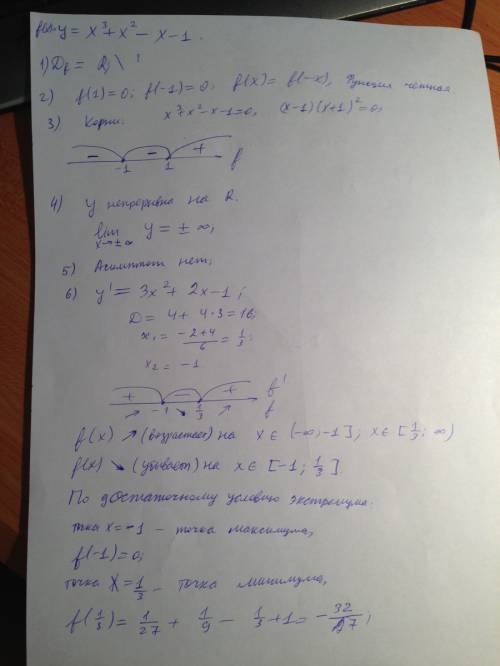 y = x³ + x² - x - 1.
1) D_f = R
2) f(1) = 0; f(-1) = 0; f(x) = f(-x), Функция чётная
3) Корни: x³ + x² - x - 1 = 0, (x-1)(x+1)² = 0;
- - + f
-1 1
4) y непрерывна на R.
lim y = ± ∞;
x→±∞
5) Асимптот нет;
6) y' = 3x² + 2x - 1;
D = 4 + 4·3 = 16;
x₁ = (-2+4)/6 = 1/3;
x₂ = -1
+ - + f'
↗ -1 ↘ 1/3 ↗ f
f(x) ↗ (возрастает) на x ∈ (-∞; -1]; x ∈ [1/3; ∞)
f(x) ↘ (убывает) на x ∈ [-1; 1/3].
По достаточному условию экстремума.
тчка x = -1 - точка максимума,
f(-1) = 0;
точка x = 1/3 - точка минимума,
f(1/3) = 1/27 + 1/9 - 1/3 + 1 = -32/27;